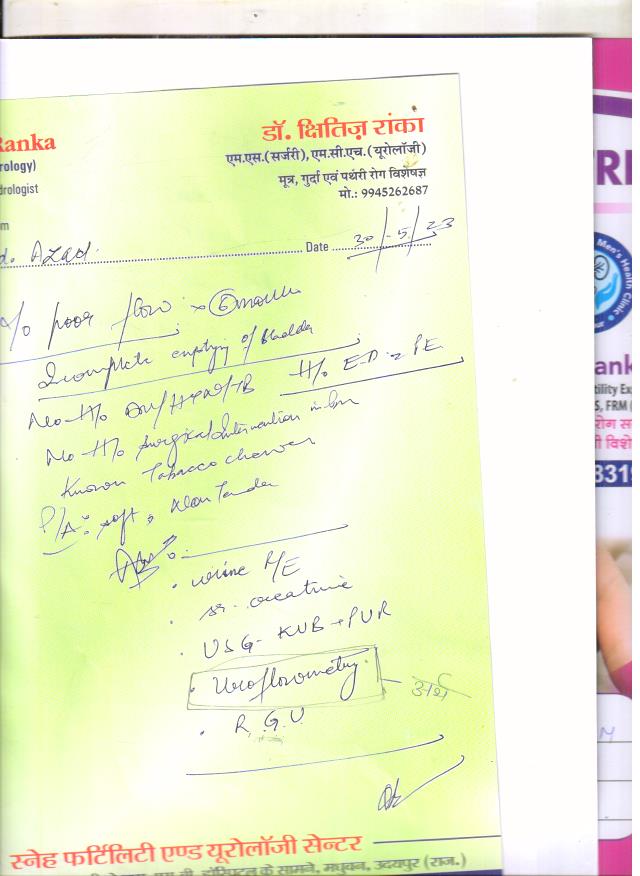 Ranka
डॉ. क्षितिज़ रांका
rology)
एम.एस.(सर्जरी), एम.सी.एच.(यूरोलॉजी)
drologist
मूत्र, गुर्दा एवं पथरी रोग विशेषज्ञ
मो.: 9945262687
m
d. Azad. Date 30/5/23
poor flow × 6 month
Incomplete emptying of bladder
No H/o DM/HTN/TB H/o E.D. P.E.
No H/o Surgical Intervention in
Known Tobacco chewer
P/A: soft, Non Tender
Adv :
. urine M/E
. sr. creatinine
. USG- KUB + PVR
. Uroflowmetry. अर्थ
. R.G.U
स्नेह फर्टिलिटी एण्ड यूरोलॉजी सेन्टर
हॉस्पिटल के सामने, मधुवन, उदयपुर (राज.)
TRI
Men's Health Clinic
ank
tility Ex
S, FRM
रोग स
विशे
8319
M